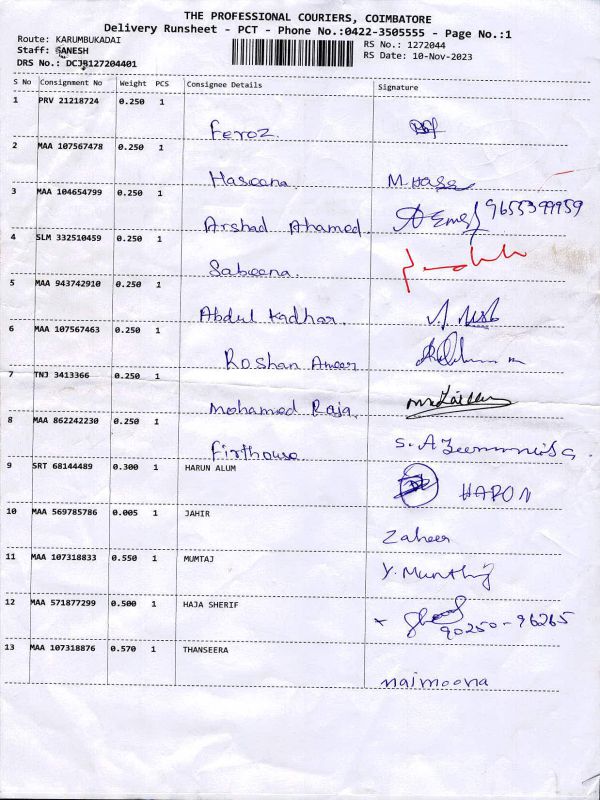 THE PROFESSIONAL COURIERS, COIMBATORE
Delivery Runsheet - PCT - Phone No.:0422-3505555 - Page No.:1
Route: KARUMBUKADAI
RS No.: 1272044
Staff: GANESH
RS Date: 10-Nov-2023
DRS No.: DCJB127204401
S No Consignment No Weight PCS Consignee Details Signature
1 PRV 21218724 0.250 1
Feroz
2 MAA 107567478 0.250 1
Haseena M. Hass
3 MAA 104654799 0.250 1
Arshad Ahamed
4 SLM 332510459 0.250 1
Sabeena
5 MAA 943742910 0.250 1
Abdul Kadhar
6 MAA 107567463 0.250 1
Roshan Ameer
7 TNJ 3413366 0.250 1
Mohamed Raja
8 MAA 862242230 0.250 1
Firthouse S. A
9 SRT 68144489 0.300 1 HARUN ALUM
HARON
10 MAA 569785786 0.005 1 JAHIR
Zaheer
11 MAA 107318833 0.550 1 MUMTAJ
Y. Munthij
12 MAA 571877299 0.500 1 HAJA SHERIF
90250-96265
13 MAA 107318876 0.570 1 THANSEERA
naimoona